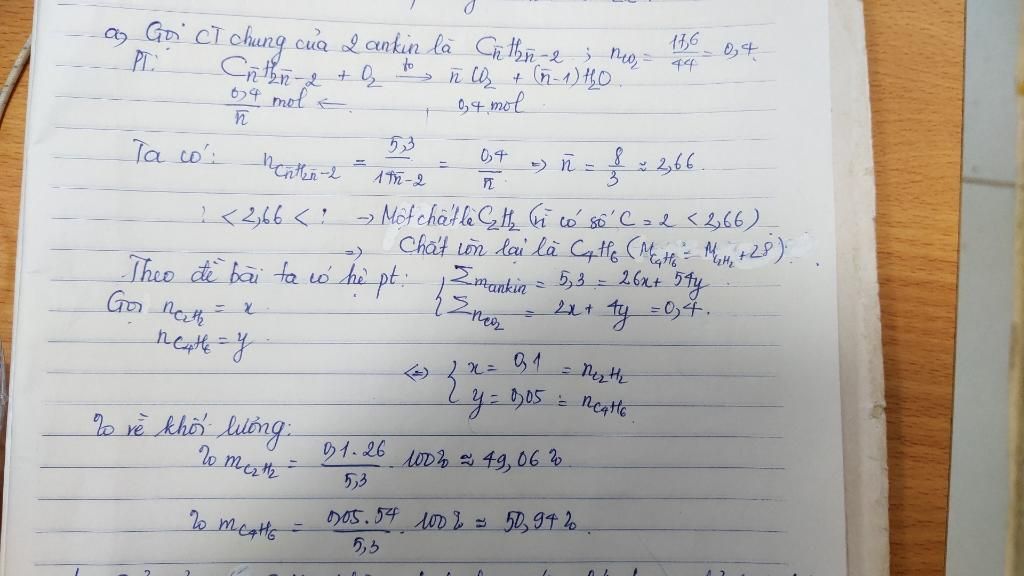 a, Gọi CT chung của 2 ankin là Cn̄H2n̄-2 ; nCO2 = 17,6/44 = 0,4.
PT: Cn̄H2n̄-2 + O2 -t°-> n̄ CO2 + (n̄-1) H2O.
0,4/n̄ mol ← 0,4 mol
Ta có: nCn̄H2n̄-2 = 5,3/14n̄-2 = 0,4/n̄ => n̄ = 8/3 ≈ 2,66.
? < 2,66 < ? → Một chất là C2H2 (vì có số C = 2 < 2,66)
=> Chất còn lại là C4H6 (MC4H6 = MC2H2 + 28).
Theo đề bài ta có hệ pt: { Σm ankin = 5,3 = 26x + 54y
Gọi nC2H2 = x { ΣnCO2 = 2x + 4y = 0,4.
nC4H6 = y
<=> { x = 0,1 = nC2H2
{ y = 0,05 = nC4H6
% về khối lượng:
% mC2H2 = 0,1.26/5,3 . 100% ≈ 49,06%
% mC4H6 = 0,05.54/5,3 . 100% ≈ 50,94%.